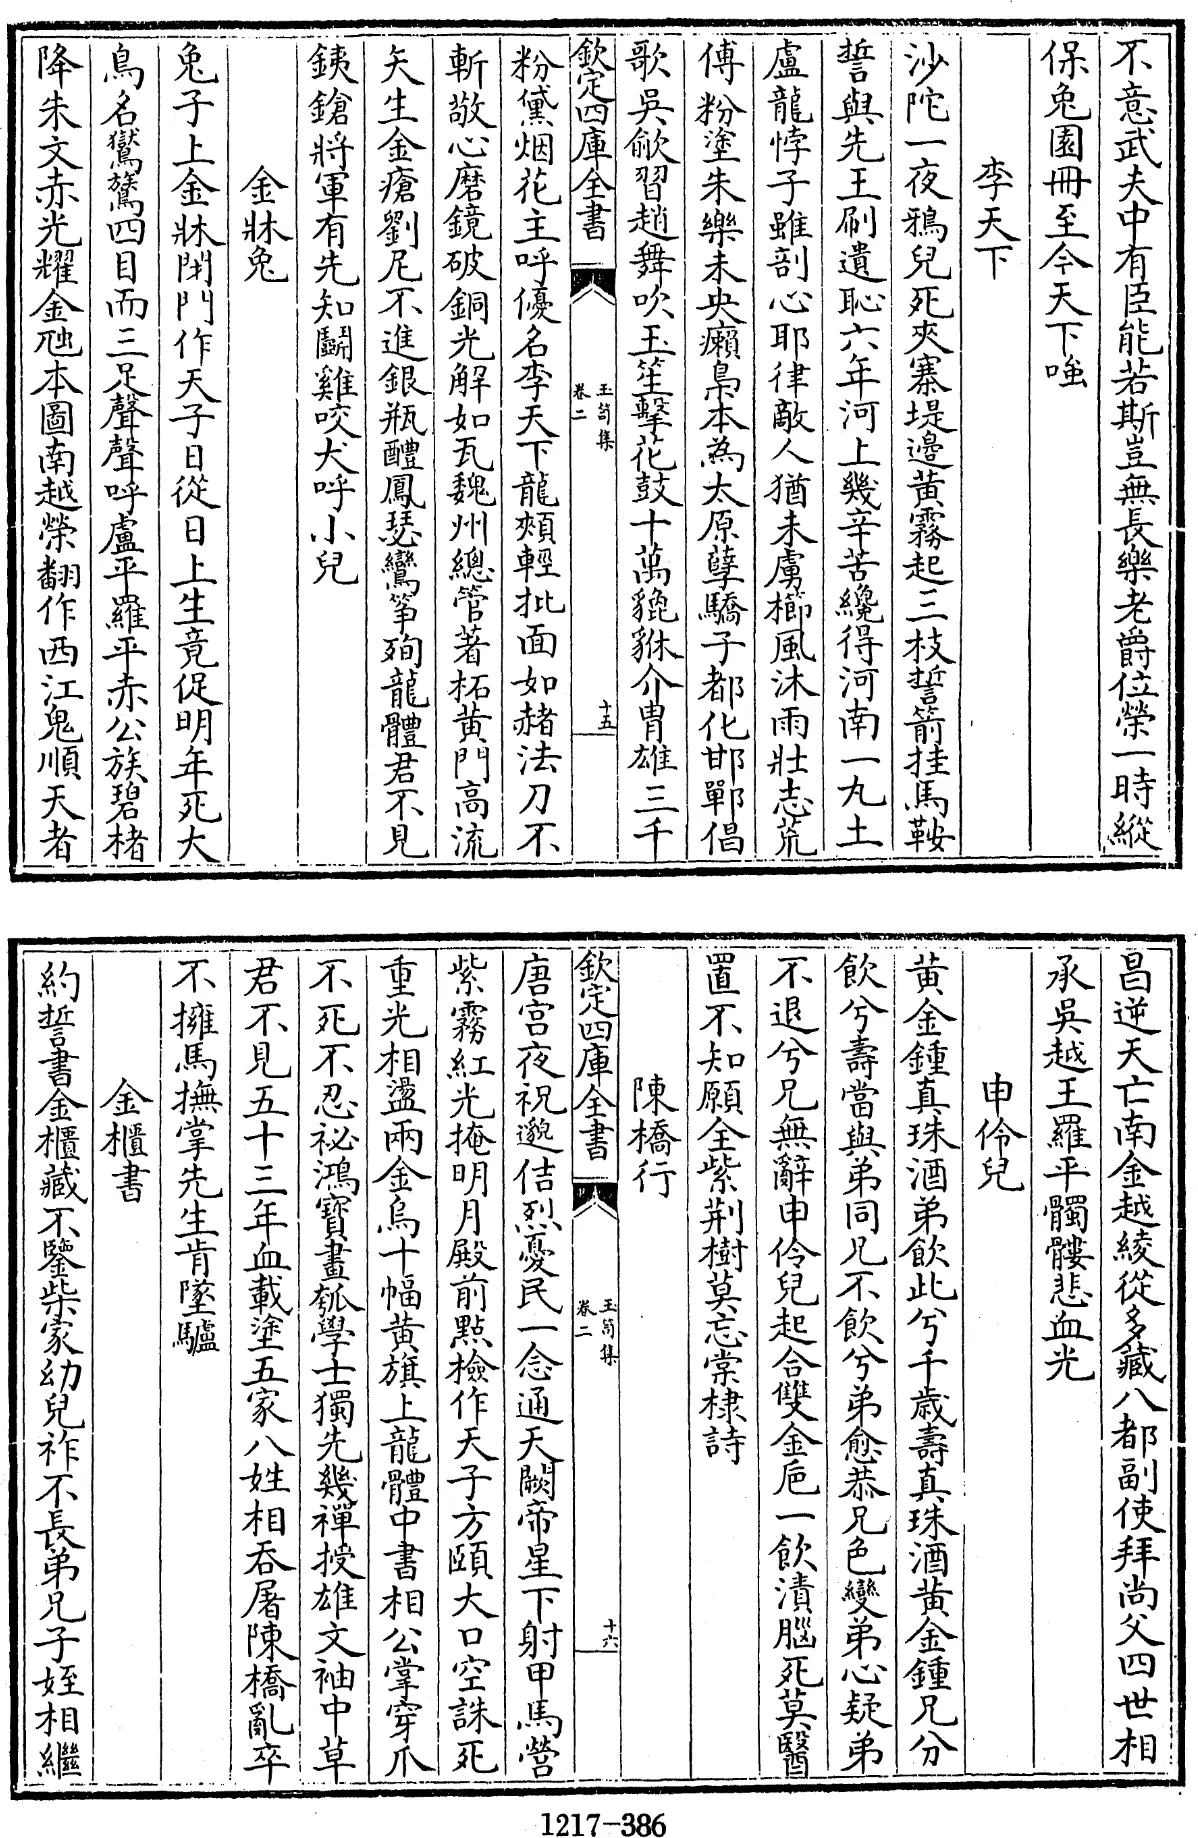 不意武夫中有臣能若斯豈無長樂老爵位榮一時縱
保兔園冊至今天下嗤
李天下
沙陀一夜鴉兒死夾寨堤邊黄霧起三枝誓箭挂馬鞍
誓與先王刷遺恥六年河上幾辛苦纔得河南一丸土
盧龍悖子雖剖心耶律敵人猶未虜櫛風沐雨壯志荒
傅粉塗朱樂未央癩梟本為太原孽驕子都化邯鄲倡
歌吳歈習趙舞吹玉笙擊花鼓十萬貔貅介胄雄三千
欽定四庫全書
玉笥集
卷二
十五
粉黛烟花主呼優名李天下龍頰輕批面如赭法刀不
斬敬心磨鏡破銅光解如瓦魏州總管著柘黄門高流
矢生金瘡劉尼不進銀瓶醴鳳瑟鸞筝殉龍體君不見
銕鎗將軍有先知鬬雞咬犬呼小兒
金牀兔
兔子上金牀閉門作天子日從日上生竟促明年死大
鳥名鸑鷟四目而三足聲聲呼盧平羅平赤公族碧楮
降朱文赤光耀金虺本圖南越榮翻作西江鬼順天者
昌逆天亡南金越綾從多藏八都副使拜尚父四世相
承吳越王羅平髑髏悲血光
申伶兒
黄金鍾真珠酒弟飲此兮千歲壽真珠酒黄金鍾兄分
飲兮壽當與弟同兄不飲兮弟愈恭兄色變弟心疑弟
不退兮兄無辭申伶兒起合雙金巵一飲潰腦死莫醫
置不知願全紫荆樹莫忘棠棣詩
陳橋行
欽定四庫全書
玉笥集
卷二
十六
唐宫夜祝邈佶烈憂民一念通天闕帝星下射甲馬營
紫霧紅光掩明月殿前點檢作天子方頤大口空誅死
重光相盪兩金烏十幅黄旗上龍體中書相公掌穿爪
不死不忍祕鴻寶畫瓠學士獨先幾禪授雄文袖中草
君不見五十三年血載塗五家八姓相吞屠陳橋亂卒
不擁馬撫掌先生肯墜驢
金櫃書
約誓書金櫃藏不鑒柴家幼兒祚不長弟兄子姪相繼
1217-386